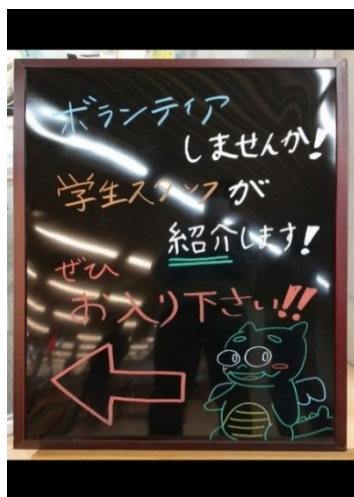 ボランティア
しませんか!
学生スタッフが
紹介します!
ぜひ
お入り下さい!!